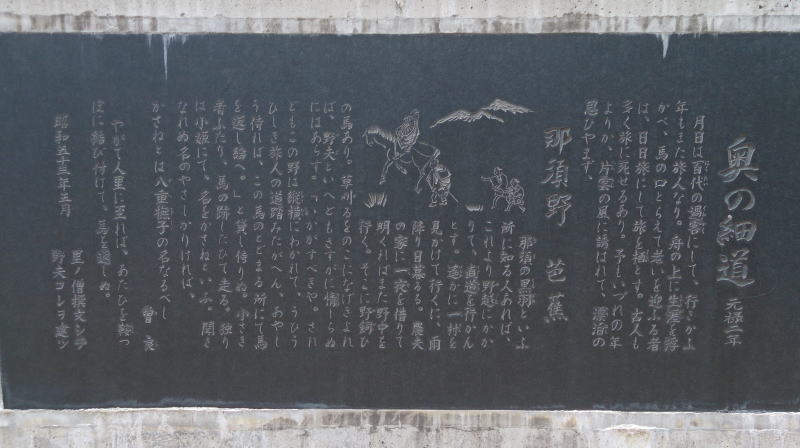 奥の細道 元禄二年
月日は百代の過客にして、行きかふ
年もまた旅人なり。舟の上に生涯を浮
かべ、馬の口とらえて老いを迎ふる者
は、日日旅にして旅を栖とす。古人も
多く旅に死せるあり。予もいづれの年
よりか、片雲の風に誘はれて、漂泊の
思ひやまず、
那須野 芭蕉
那須の黒羽といふ
所に知る人あれば、
これより野越にかか
りて、直道を行かん
とす。遥かに一村を
見かけて行くに、雨
降り日暮るる。農夫
の家に一夜を借りて
明くればまた野中を
行く。そこに野飼ひ
の馬あり。草刈るをのこになげきよれ
ば、野夫といへどもさすがに情しらぬ
にはあらず。「いかがすべきや。され
どもこの野は縦横にわかれて、うひう
ひしき旅人の道踏みたがへん、あやし
う侍れば、この馬のとどまる所にて馬
を返し給へ。」と貸し侍りぬ。小さき
者ふたり、馬の跡したひて走る。独り
は小姫にて、名をかさねといふ。聞き
なれぬ名のやさしかりければ、
かさねとは八重撫子の名なるべし
曽良
やがて人里に至れば、あたひを鞍つ
ぼに結び付けて、馬を返しぬ。
昭和五十三年五月
里ノ僧撰文シテ
野夫コレヲ建ツ